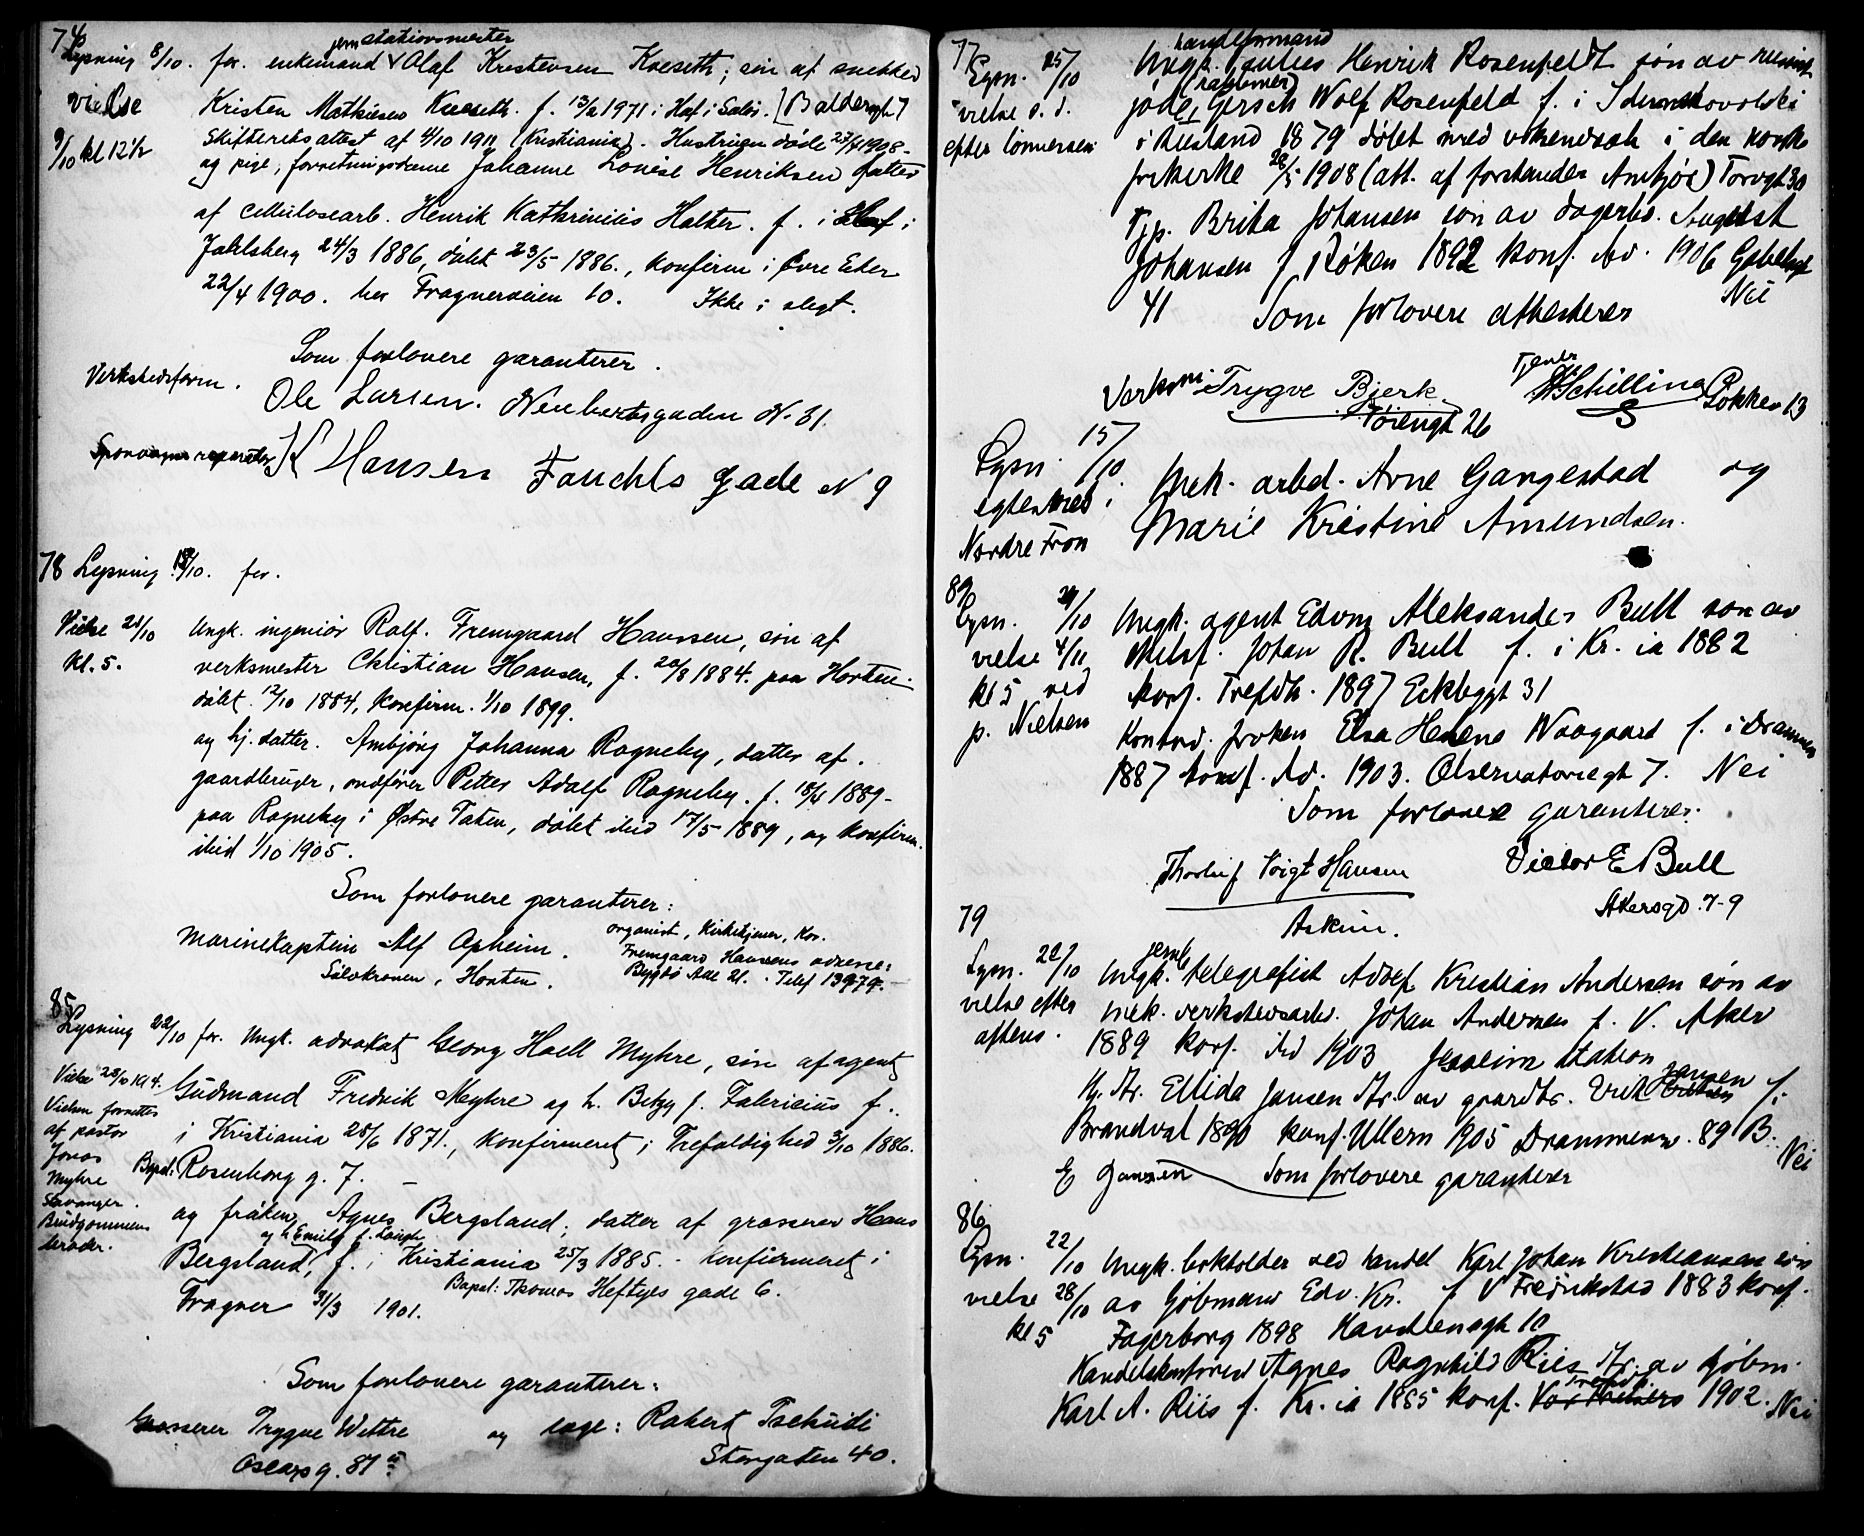 74
Lysning 8/10. for. enkemand jernstationsmester Olaf Kristensen Kveseth, søn af snekker
vielse Kristen Mathiesen Kveseth. f. 13/2 1971 i Hof i Solør.
9/10 kl 12½ Skifteretsattest af 4/10 1911 (Kristiania). Hustruen døde 27/4 1908-
og pige, forretningsdame Johanne Lovise Henriksen datter
af cellulosearb. Henrik Kathrinius Halter. f. i
Jarlsberg 24/3 1886, døbt 23/5 1886., konfirm i Øvre Eker
22/4 1900. bor Frognerveien 10. Ikke i slegt.
Som forlovere garanterer.
Verkstedsform. Ole Larsen. Neubertsgaden N. 31.
Sporvognsreparatør K Hansen Fauchls gade N 9
78 Lysning 18/10. for.
Vielse 21/10 Ungk. ingeniør Rolf. Fremgaard Hanssen, søn af
kl. 5. verksmester Christian Hansen, f. 20/8 1884. paa Horten.
døbt 12/10 1884, konfirm. 1/10 1899.
og hj. datter. Ambjørg Johanna Rogneby, datter af.
gaardbruger, ordfører Petter Adolf Rogneby. f. 18/4 1889-
paa Rogneby i Østre Toten, døbt ibid 17/5 1889, og konfirm.
ibid 1/10 1905.
Som forlovere garanterer:
Marinekaptein Alf Opheim.
Sølvkronen, Horten.
organist, Kirketjener, Kor.
Fremgaard Hansens adresse:
Bygdø Alle 21. Telef 13979.
85
Lysning 22/10 for. Ungk. advokat Georg Hoell Myhre, søn af agent
Vielse 28/10 194. Gudmand Fredrik Myhre og h. Betzy f. Fabricius f..
Vielsen forrettes
af pastor
Jonas
Myhre
Stavanger.
Brudgommens
broder.
i Kristiania 25/6 1871., konfirmeret i Trefoldighed 3/10 1886.
Bopæl: Rosenborg g. 7.
og frøken, Agnes Bergsland, datter af grosserer Hans
og h. Emily f. Lough
Bergsland, f. i Kristiania 25/3 1885. - konfirmeret i
Frogner 31/3 1901. Bopæl: Thomas Heftyes gade 6.
Som forlovere garanterer:
Grosserer Trygve Wettre og læge: Robert Tschudi
Oscarsg. 87 Storgaten 40.
77 handelsmand
Lysn. 25/10 Ungk. Julius Henrik Rosenfeldt søn av
vielse s. d. jøde, (rabbiner) Gersch Wolf Rosenfeld f. i
efter lønnerseen i Rusland 1879 døbt med vitnendsab i den norske
frikirke 28/5 1908 (att. af forstander Arnkjøe) Torvgt 30
Tjp. Brika Johansen søn av dagarb. August
Johansen f Røken 1892 konf. ibd. 1906 Gabelsgt
41 Nei
Som forlovere attesterer
Verksm. Trygve Bjerk Tjener Schilling Løkken 13
Tøiengt 26
Lysn. 15/10 Mek. arbd. Arne Gangestad og
egteskab i Marie Kristine Amundsen.
Nordre Fron
89
Lysn. 24/10 Ungk. agent Edvin Aleksander Bull søn av
vielse 4/11 Johan R. Bull f. i Kr. ia 1882
kl 5 ved konf. Trefdh. 1897 Eckbgt 31
p. Nielsen Kontord. frøken Elsa Helene Waagaard f. i Drammen
1887 konf. ibd. 1903. Observatoriegt 7. Nei
Som forlovere garanterer.
Thorleif Voigt Hansen Victor E Bull
Askim. Akersgd. 7-9
79
Lysn. 22/10 Ungk. jernb telegrafist Adolf Kristian Andersen søn av
vielse efter mek. verkstedsarb. Johan Andersen f. V. Aker
aftens. 1889 konf. ibd 1903 Jessheim station
Hj. dtr. Ellida Jansen dtr. av gaardbr. Erik Jansen f.
Brandval 1890 konf. Ullern 1905 Drammensv. 89 B. Nei
E Jansen Som forlovere garanterer
86
Lysn. 22/10 Ungk. bokholder ved handel Karl Johan Kristiansen søn
vielse 28/10 av kjøbmand Edv. Kr. f V Fredrikstad 1883 konf.
kl 5 Fagerborg 1898 Havstensgt 10
Handelskontoret Agnes Ragnhild Riis dtr. av kjøbm.
Karl A. Riis f. Kr. ia 1885 konf. Trefdh. 1902. Nei